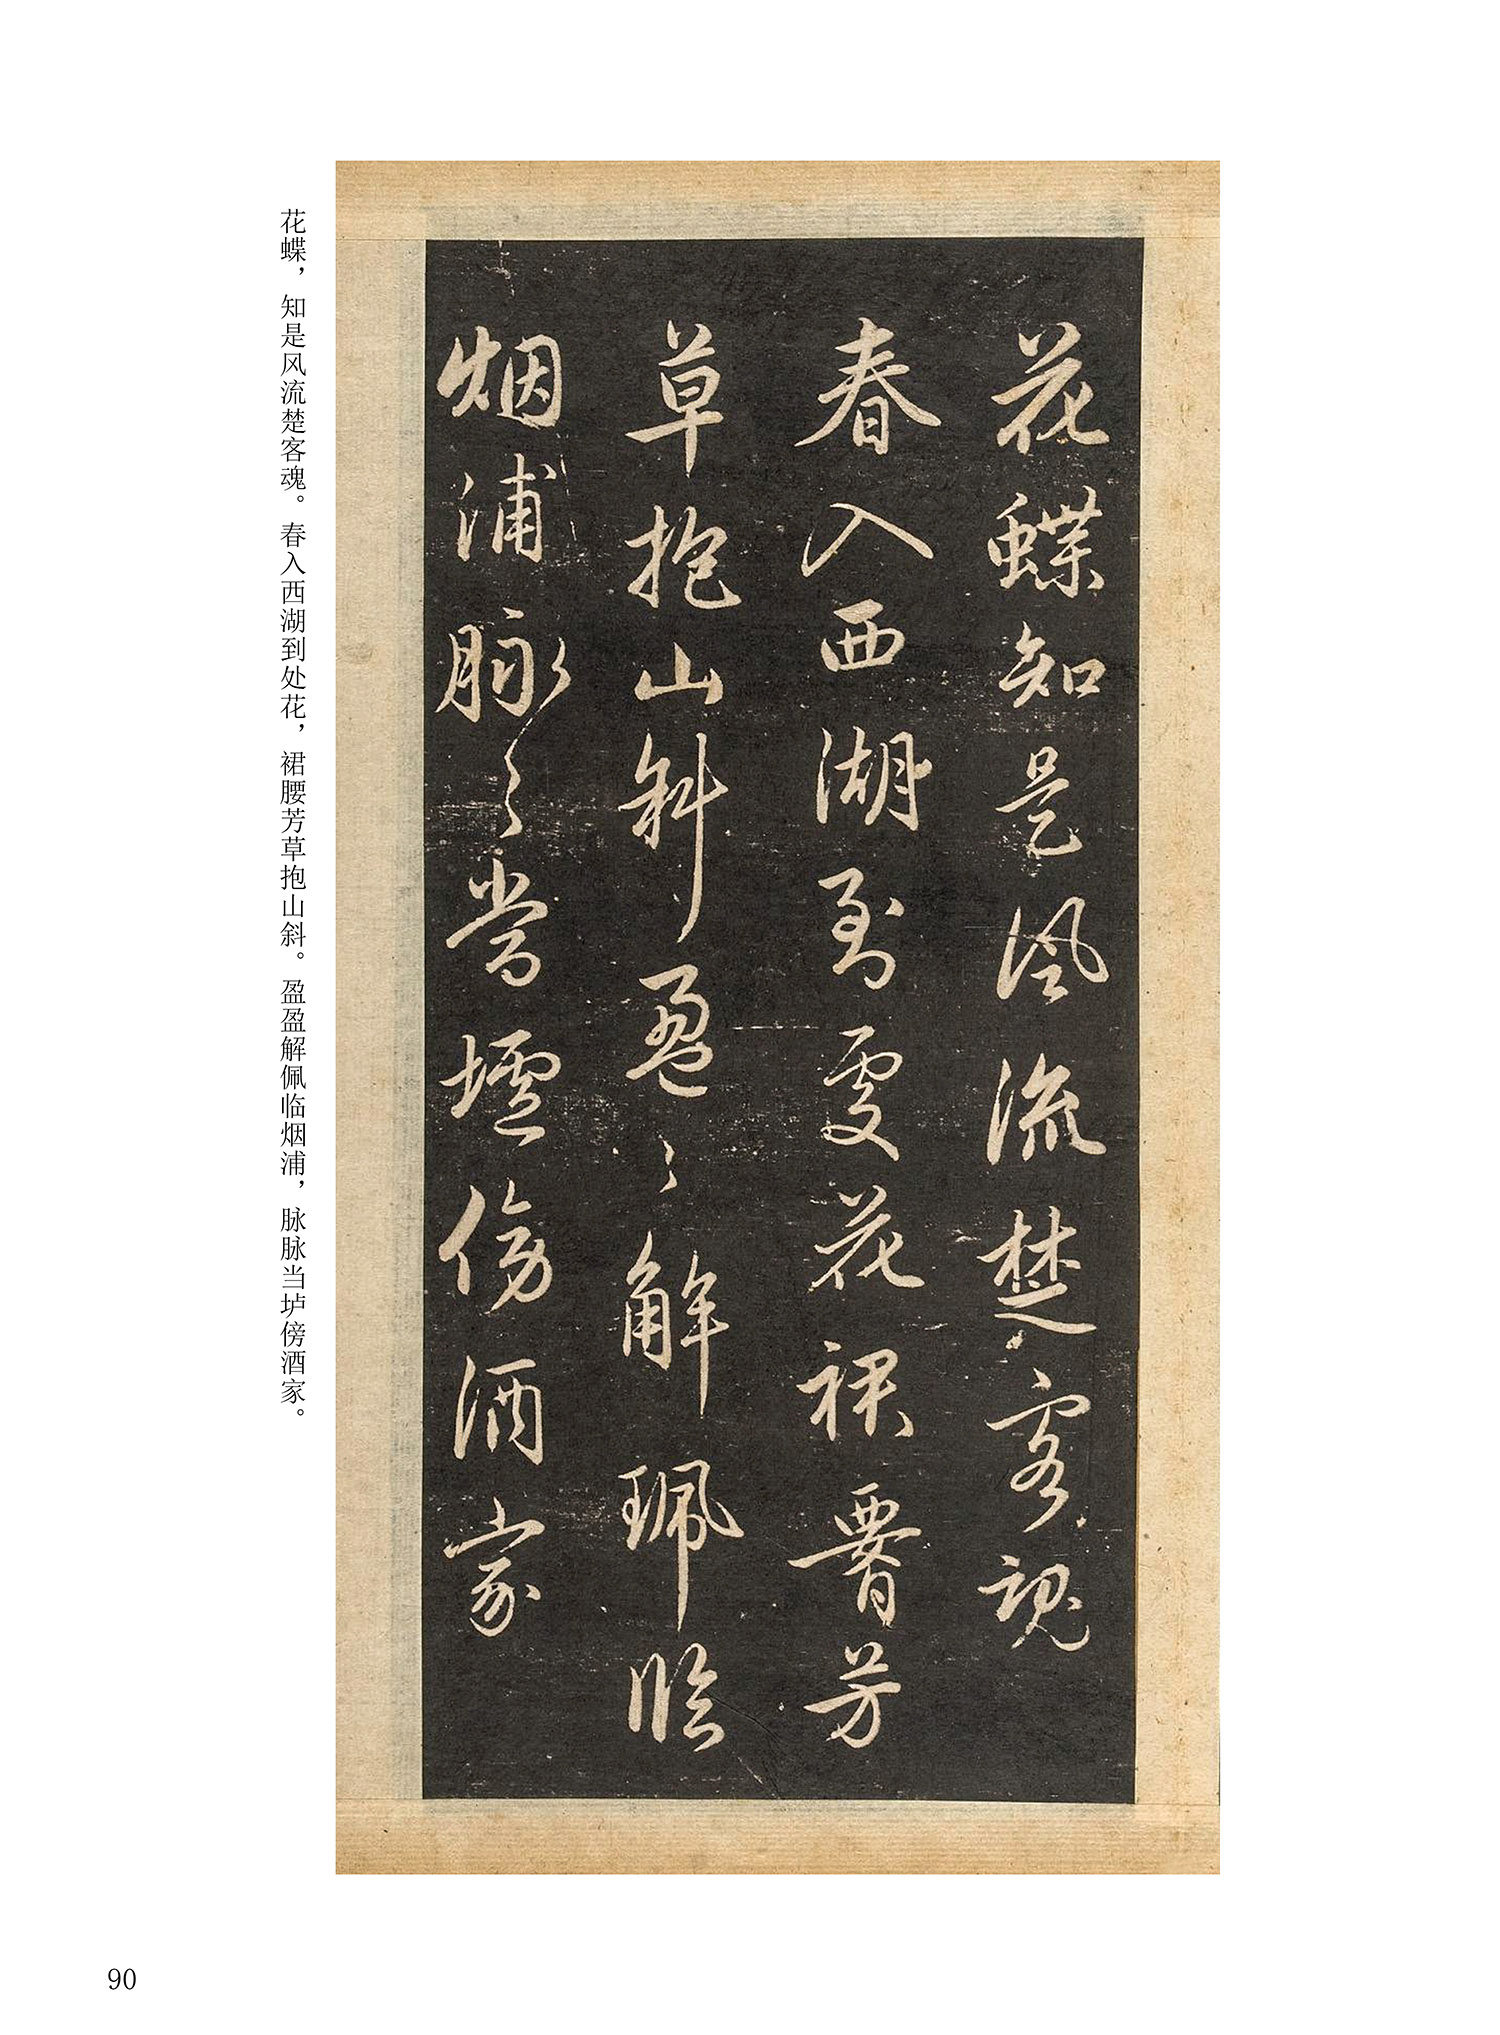 花蝶知是风流楚客魂
春入西湖到处花裙腰芳
草抱山斜盈〻解珮临
烟浦脉〻当垆傍酒家
花蝶，知是风流楚客魂。春入西湖到处花，裙腰芳草抱山斜。盈盈解佩临烟浦，脉脉当垆傍酒家。
90